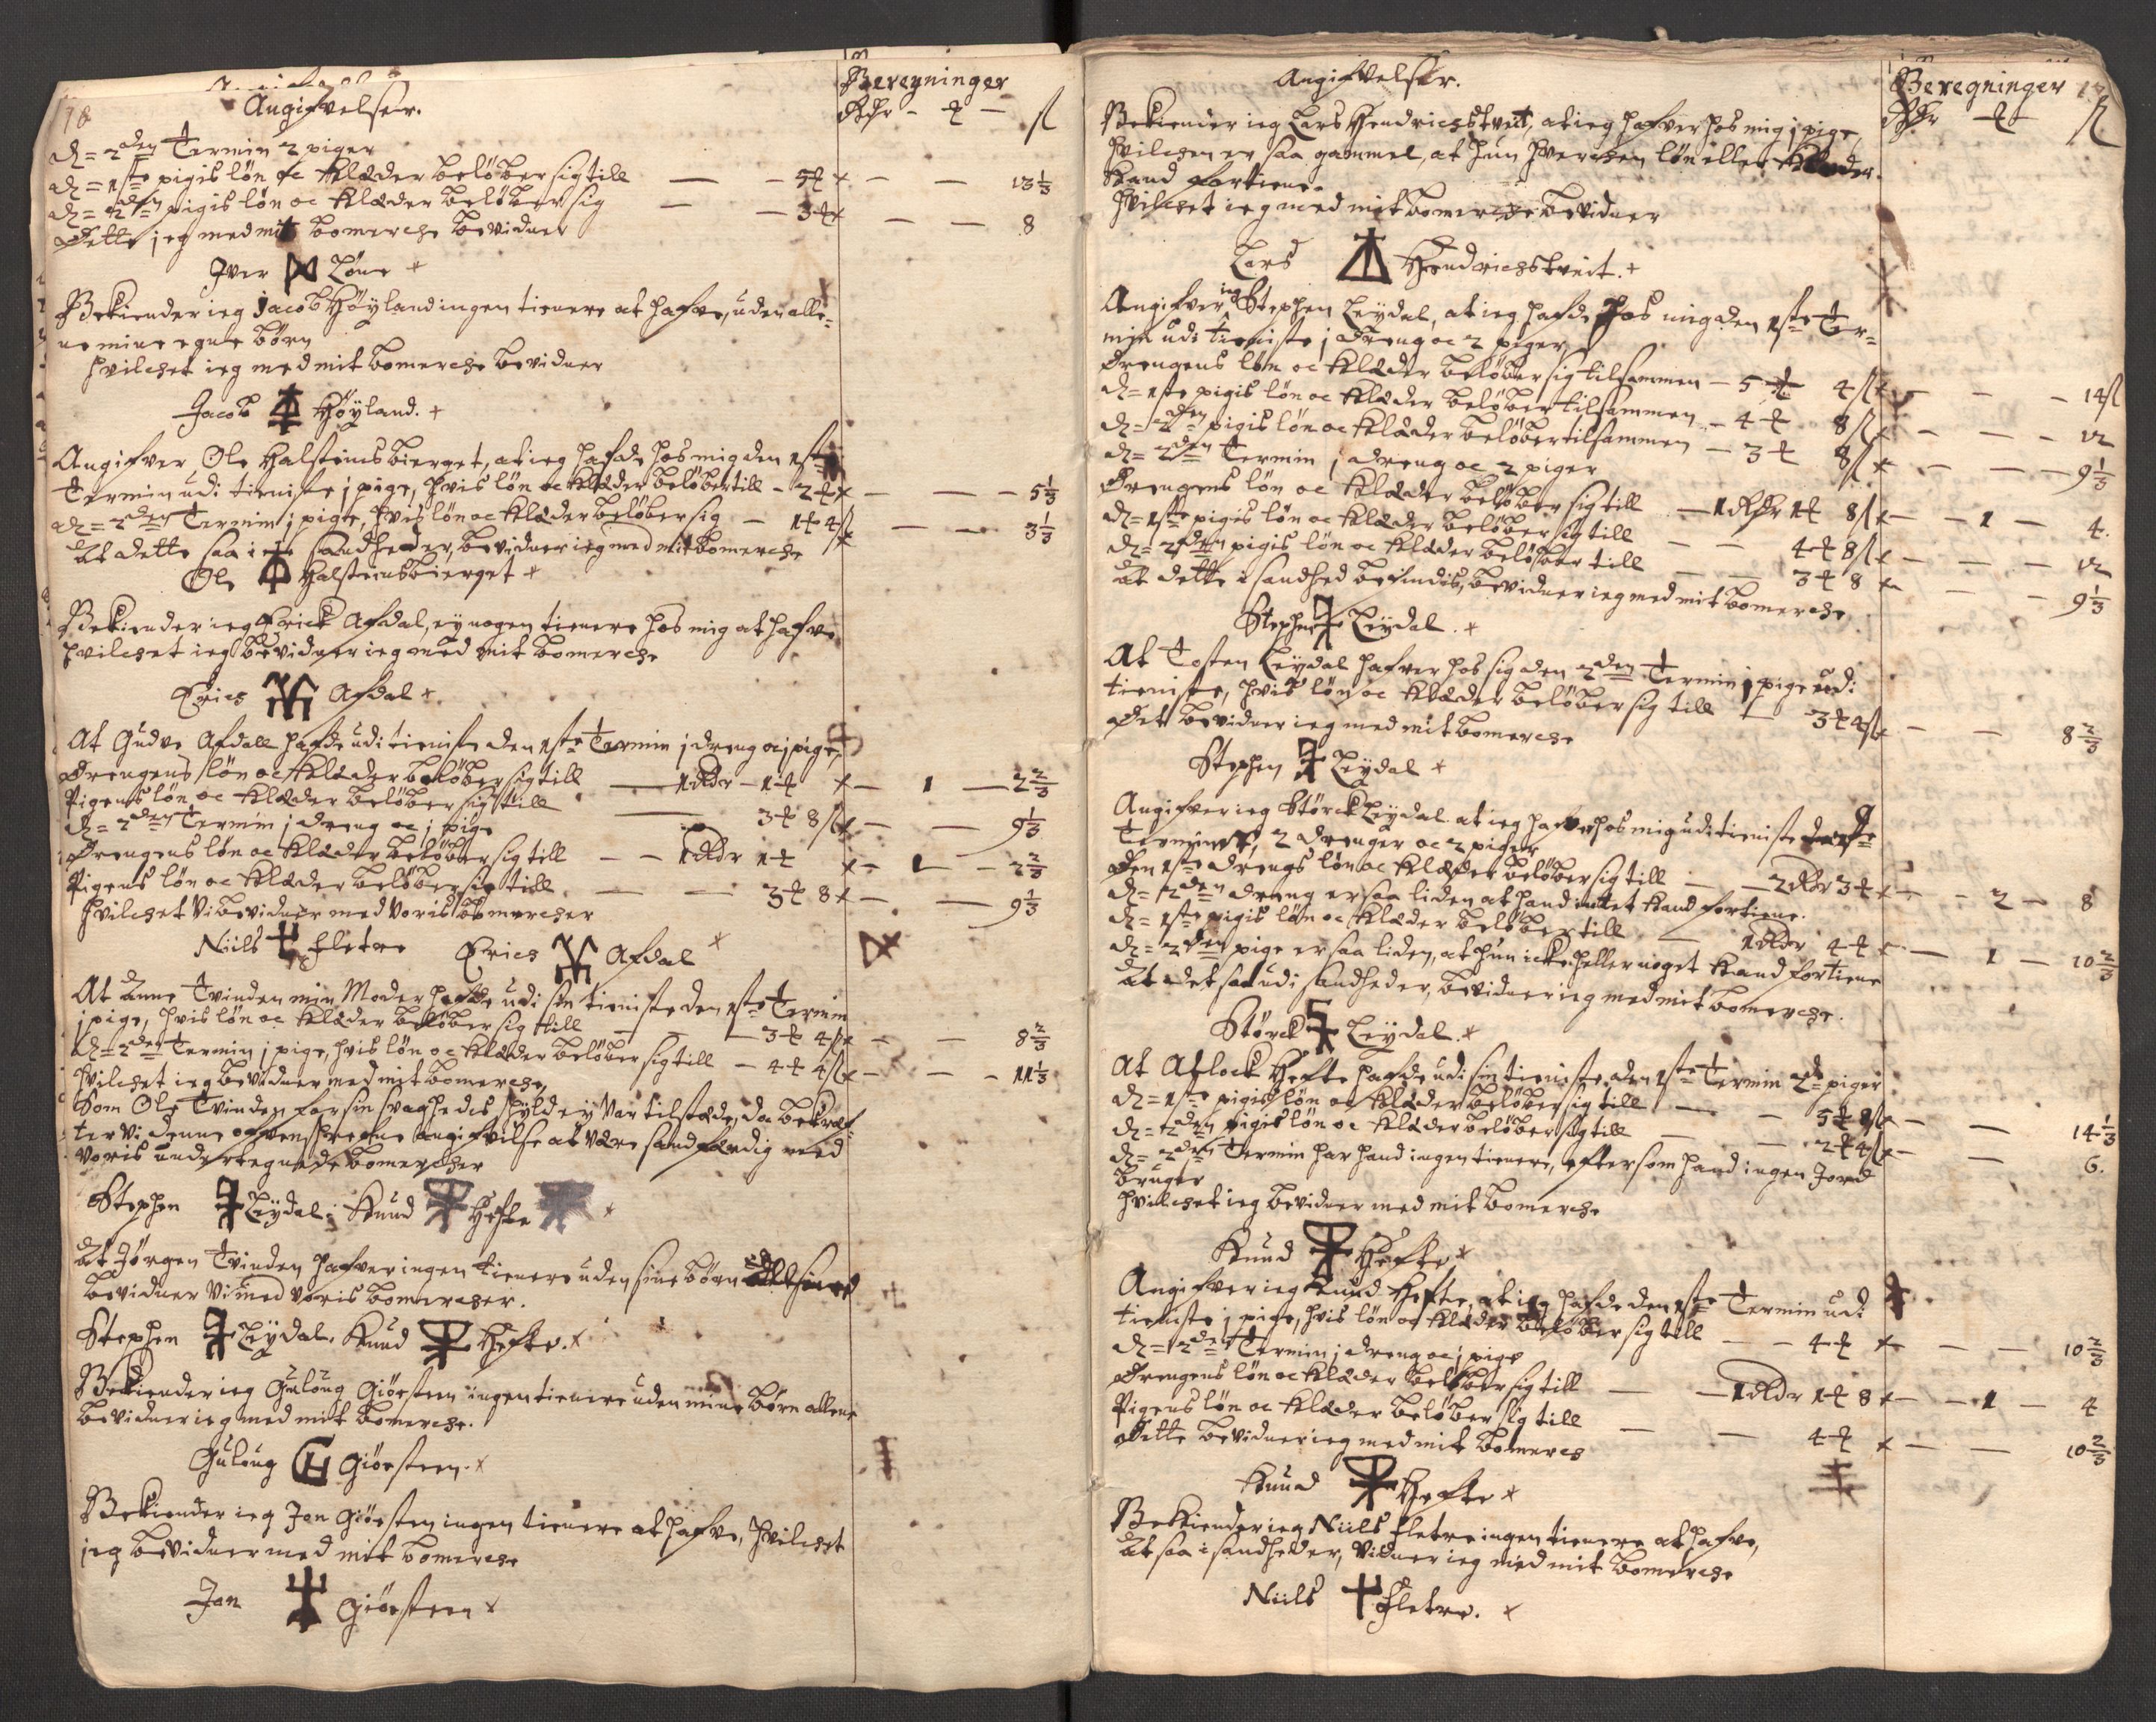 Angifvelser.
Beregninger
Rdr - ₰ - ſſ
D= 2den Termin 2 piger
D= 1ste pigis løn oc Klæder beløber sig till — 5 ₰ × — — 13 1/3
D= 2den pigis løn oc Klæder beløber sig — 3 ₰ × — — 8
Dette jeg med mit bomerche bevidner
Iver Løne
Bekiender ieg Jacob Høyland ingen tienere at hafve, uden alle=
ne mine egne børn
hvilchet ieg med mit bomerche bevidner
Jacob Høyland.
Angifver Ole Halsteinsbierget, at ieg hafde hos mig den 1ste
Termin udi tieniste j pige, hvis løn oc Klæder beløber till - 2 ₰ × — — 5 1/3
D= 2den Termin j pige, hvis løn oc Klæder beløber sig — 1 ₰ 4 ſſ — — 3 1/3
At dette saa i sandhed er, bevidner ieg med mit bomerche
Ole Halsteinsbierget
Bekiender ieg Erick Afdal, ey nogen tienere hos mig at hafve
hvilchet ieg bevidner ieg med mit bomerche
Erics Afdal
At Gudve Afdall hafde udi tieniste den 1ste Termin j dreng oc j pige,
Drengens løn oc Klæder beløber sig till — 1 Rdr - 1 ₰ × — 1 — 2 2/3
Pigens løn oc Klæder beløber sig till — 3 ₰ 8 ſſ × — — 9 1/3
D= 2den Termin j dreng oc j pige
Drengens løn oc Klæder beløber sig till — 1 Rdr 1 ₰ × — 1 — 2 2/3
Pigens løn oc Klæder beløber sig till — 3 ₰ 8 × — — 9 1/3
hvilchet Vi bevidner med voris bomercher
Niils Fletre Erics Afdal
At Anne Tvinden min Moder hafde udi sin tieniste den 1ste Termin
j pige, hvis løn oc Klæder beløber sig till — 3 ₰ 4 ſſ × — — 8 2/3
D= 2den Termin j pige, hvis løn oc Klæder beløber sig till — 4 ₰ 4 ſſ × — — 11 1/3
hvilchet ieg bevidner med mit bomerche,
Som Ole Tvinden for sin svagheds skyld ey var tilstæde, da bekræf=
ter Vi denne ofvenskrefne angifvelse at være sandfærdig med
voris undertegnede bomercher
Stephen Leydal. Knud Hefte
At Jørgen Tvinden hafver ingen tienere uden sine børn
bevidner Vi med voris bomercher.
Stephen Leydal. Knud Hefte.
Bekiender ieg Gulöug Giøesteen ingen tienere uden mine børn allene
bevidner ieg med mit bomerche.
Gulöug Giøesteen.
Bekiender ieg Jon Giøesteen ingen tienere at hafve, hvilchet
jeg bevidner med mit bomerche
Jon Giøesteen
Angifvelser.
Beregninger
Rdr ₰ ſſ
Bekiender ieg Lars Hendrichstveit, at ieg hafver hos mig j pige,
hvilchen er saa gammel, at hun hverchen løn eller Klæder
Kand fortiene.
hvilchet ieg med mit bomerche bevidner
Lars Hendrichstveit.
Angifver ieg Stephen Leydal, at ieg hafde hos mig den 1ste Ter=
min udi tieniste j dreng oc 2 piger
Drengens løn oc Klæder beløber sig tilsammen — 5 ₰ 4 ſſ × — — 14 ſſ
D= 1ste pigis løn oc Klæder beløber tilsammen — 4 ₰ 8 ſſ × — — 12
D= 2den pigis løn oc Klæder beløber tilsammen — 3 ₰ 8 ſſ × — — 9 1/3
D= 2den Termin j dreng oc 2 piger
Drengens løn oc Klæder beløber sig till — 1 Rdr 1 ₰ 8 ſſ × — 1 — 4.
D= 1ste pigis løn oc Klæder beløber sig till — 4 ₰ 8 ſſ × — — 12
D= 2den pigis løn oc Klæder beløber till — 3 ₰ 8 × — — 9 1/3
at dette i sandhed befindis, bevidner ieg med mit bomerche
Stephen Leydal.
At Tosten Leydal hafver hos sig den 2den Termin j pige udi
tieniste, hvis løn oc Klæder beløber sig till — 3 ₰ 4 ſſ × — — 8 2/3
Det bevidner ieg med mit bomerche
Stephen Leydal
Angifver ieg Störck Leydal at ieg hafver hos mig udi tieniste
Terminer, 2 drenger oc 2 piger
Den 1ste drengs løn oc Klæder beløber sig till — 2 Rdr 3 ₰ × — 2 — 8
D= 2den dreng er saa liden at hand intet Kand fortiene.
D= 1ste pigis løn oc Klæder beløber till — 1 Rdr 4 ₰ × — 1 — 10 2/3
D= 2den pige er saa liden, at hun icke heller noget Kand fortiene
At det saa udi sandhed er, bevidner ieg med mit bomerche.
Störck Leydal.
At Atlock Hefte hafde udi sin tieniste den 1ste Termin 2de piger
D= 1ste pigis løn oc Klæder beløber sig till — 5 ₰ 8 ſſ × — — 14 1/3
D= 2den pigis løn oc Klæder beløber sig till — 2 ₰ 4 ſſ × — — 6.
D= 2den Termin har hand ingen tienere, eftersom hand ingen Jord
bruger
hvilchet ieg bevidner med mit bomerche
Knud Hefte
Angifver ieg Knud Hefte, at ieg hafde den 1ste Termin udi
tieniste j pige, hvis løn oc Klæder beløber sig till — 4 ₰ × — — 10 2/3
D= 2den Termin j dreng oc j pige
Drengens løn oc Klæder beløber sig till — 1 Rdr 1 ₰ 8 × — 1 — 4
Pigens løn oc Klæder beløber sig till — 4 ₰ × — — 10 2/3
Dette bevidner ieg med mit bomerch
Knud Hefte
Bekiender ieg Niils Fletre ingen tienere at hafve,
At saa i sandhed er, vidner ieg med mit bomerche
Niils Fletre.